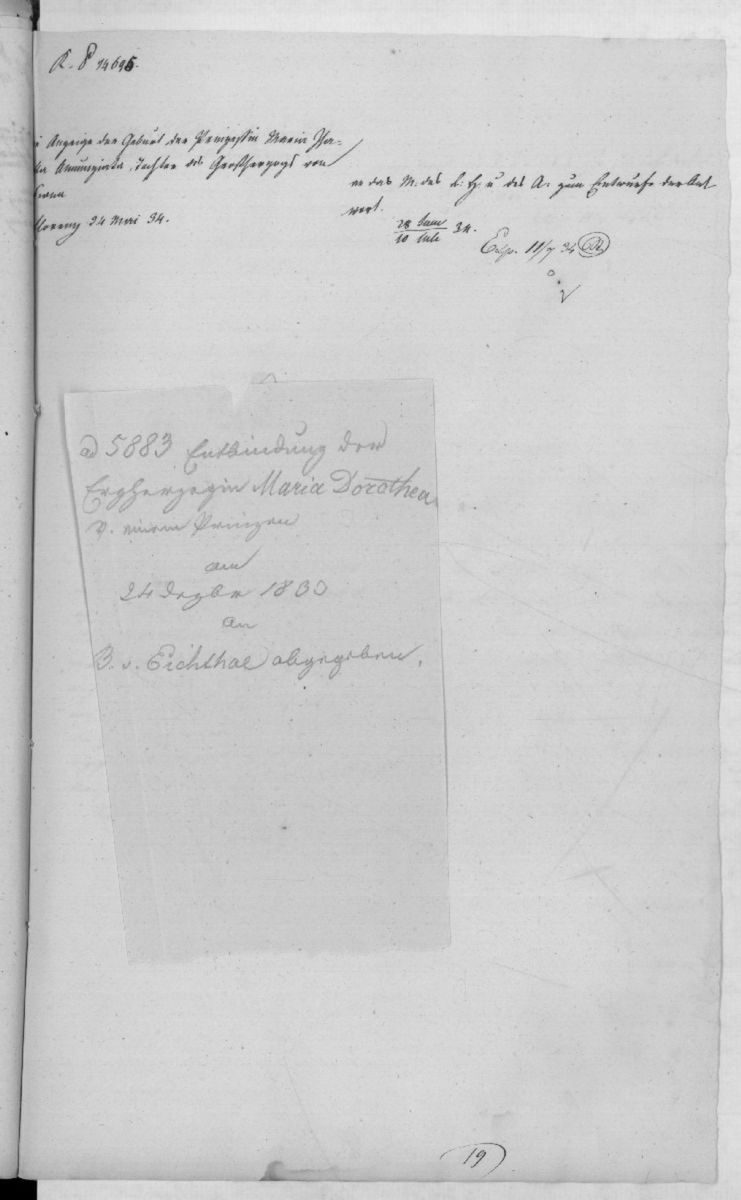 K. P 14695.
Anzeige der Geburt der Prinzessin Maria Isa-
lla Annunziata, Tochter des Großherzogs von
Florenz 24 Mai 34.
an das M. des k. H. u des A. zum Entwurfe der Ant
wort.
28 Juni
10 Juli 34.
Exp. 11/7 34
ad 5883 Entbindung der
Erzherzogin Maria Dorothea
v. einem Prinzen
am
24 Dezbr 1830
an
B. v. Eichthal abgegeben.
19